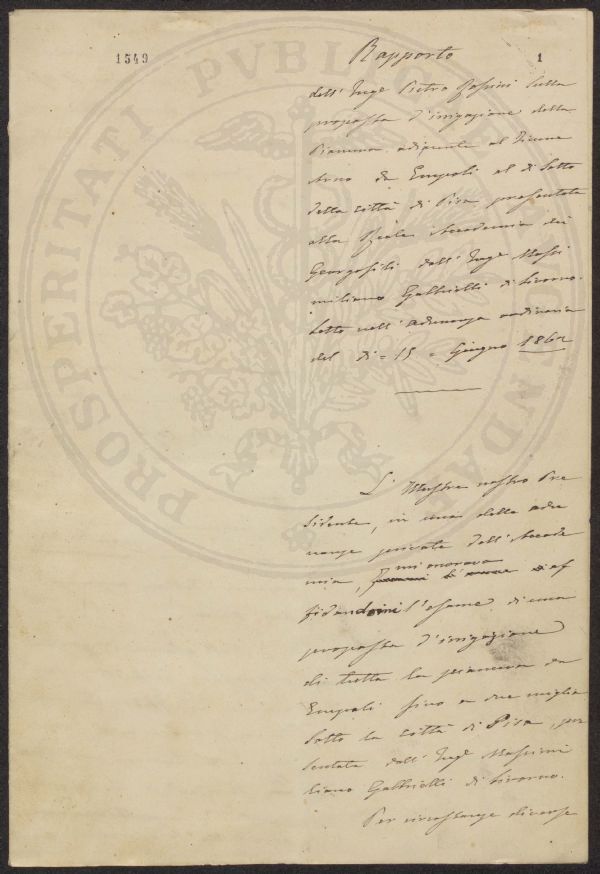 1549
1
Rapporto
dell' Inge Pietro Passini sulla
proposta d'irrigazione della
Pianura adiacente al Fiume
Arno da Empoli al di sotto
della città di Pisa presentata
alla Reale Accademia dei
Georgofili dall' Inge Massi
miliano Gabbrielli di Livorno.
Letto nell' adunanza ordinaria
del di = 15 = Giugno 1862
L' Illustre nostro Pre
sidente, in una delle adu
nanze private dell' Accade
mia, mi onorava af
fidandomi l'esame di una
proposta d'irrigazione
di tutta la pianura da
Empoli fino a due miglia
sotto la città di Pisa, pre
sentata dall' Inge Massimi
liano Gabbrielli di Livorno.
Per circostanze diverse
PROSPERITATI PVBLICAE AVGENDAE